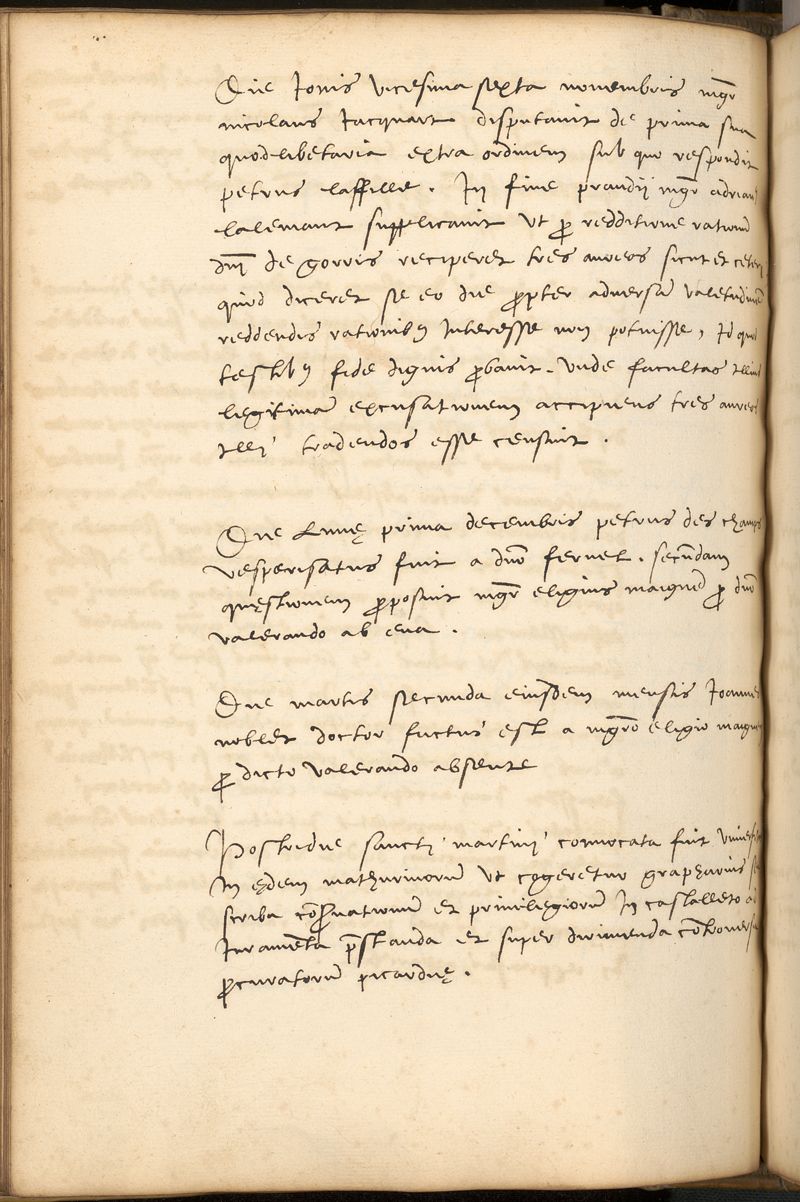 Die Jovis vicesima sexta novembris mgr
nicolaus Jacquart disputavit de prima sua
quodlibetaria extra ordinem sub quo respondit
petrus laffille. In fine prandij mgr adrian
lalemant supplicavit ut pro redditione rationu
dni de gorris reciperet tres aureos sicut et ceteri
quod diceret se eo die propter adversa valetudine
reddendis rationibus Interesse non potuisse, Id quod
testibus fide dignis probavit. Unde facultas illius
legitima excusationem accipiens tres aureos
illi tradendos esse censuit.
Die Lunę prima decembris petrus des champs
vesperisatus fuit a dno fernel. secundam
quęstionem proposuit mgr eligius maigne pro dno
valerando ab eua.
Die martis secunda eiusdem mensis Joannes
noblet doctor factus est a mgro eligio
pro dicto valerando absente
Postridie sancti martini convocata fuit
In ędem mathurinoru ut cogeretur grapharius
scriba conservationu et privilegioru In castalleto ad
Juramenta prestanda et super dirimenda controversia
procuratoru picardię.